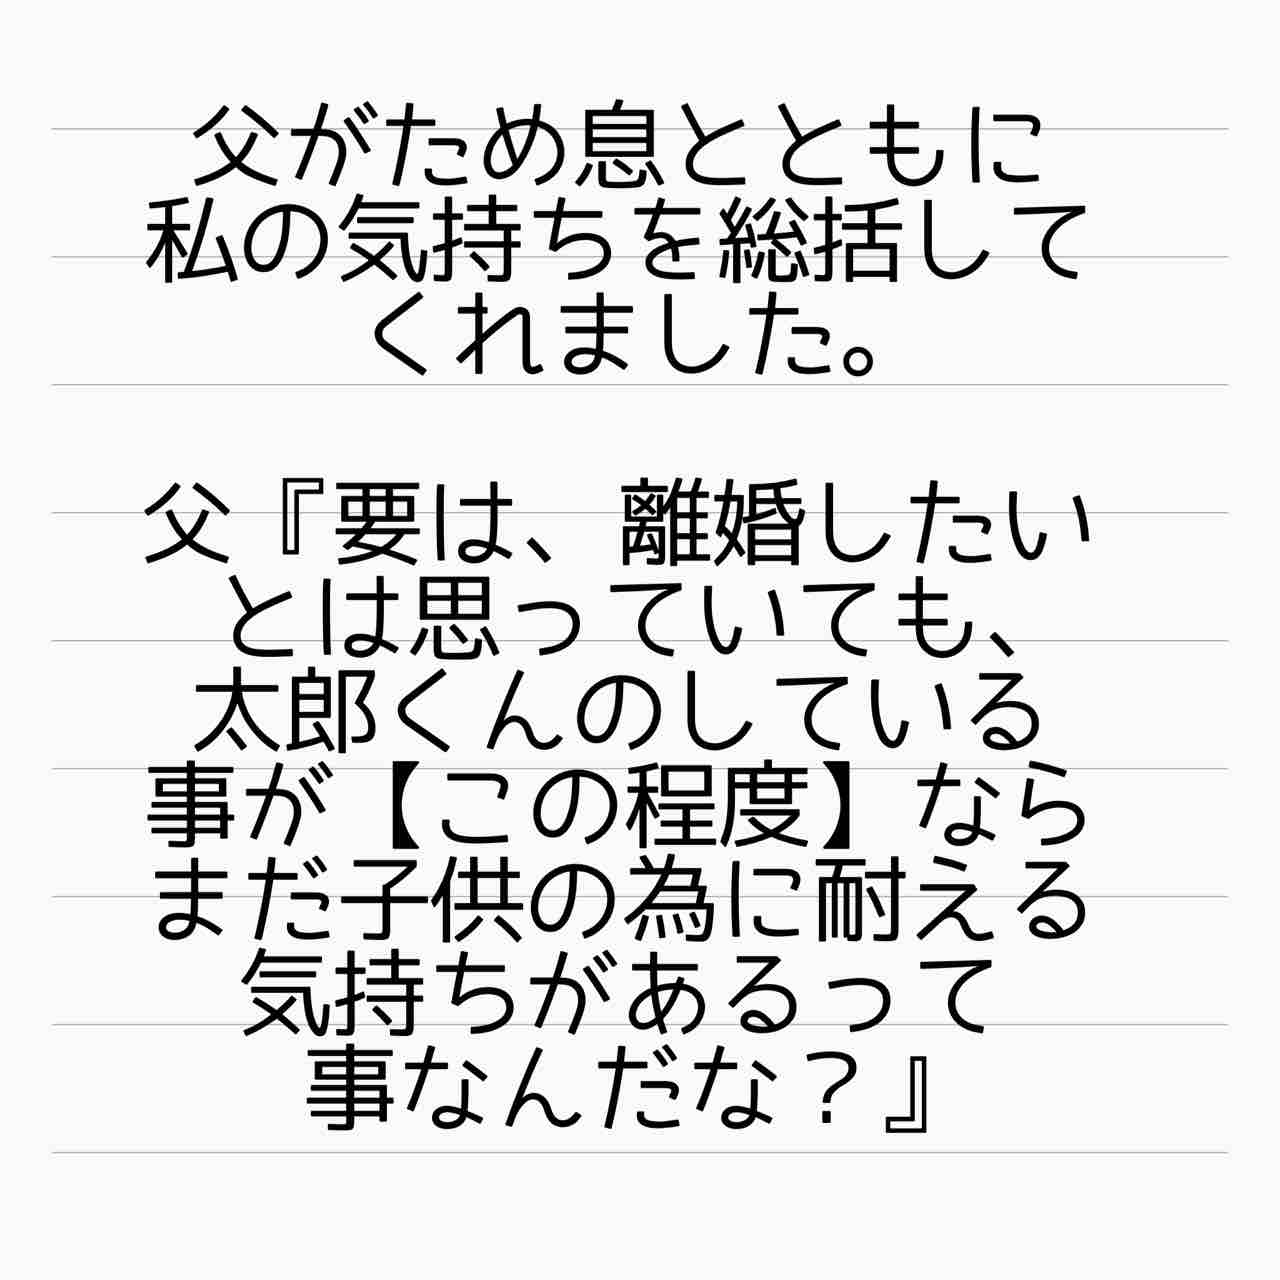 父がため息とともに
私の気持ちを総括して
くれました。
父『要は、離婚したい
とは思っていても、
太郎くんのしている
事が【この程度】なら
まだ子供の為に耐える
気持ちがあるって
事なんだな？』